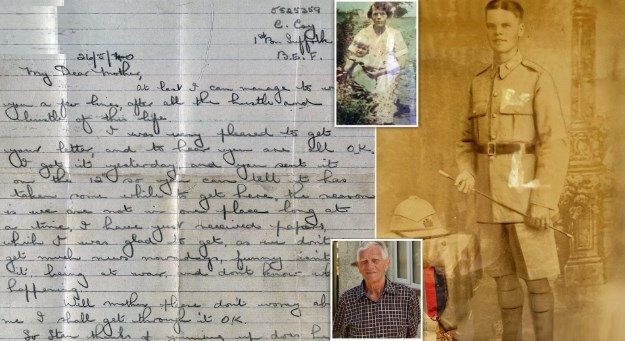 5825259
C. Coy
1st Bn Suffolk
B.E.F.
26/5/40
My Dear Mother,
at last I can manage to
you a few lines, after all the hustle and
bustle of this life.
I was very pleased to get
your letter and to hear you are all O.K.
I got it yesterday and you sent it
on the 12 so you can tell it has
taken some while to get here, the reason
is we are not in one place long at
a time, I have just received papers,
which I was glad to get, as we don't
get much news nowadays, funny isn't
it, being at war, and don't know
happening.
Well mother please don't worry
me I shall get through it O.K.
So Stan thinks of joining up does